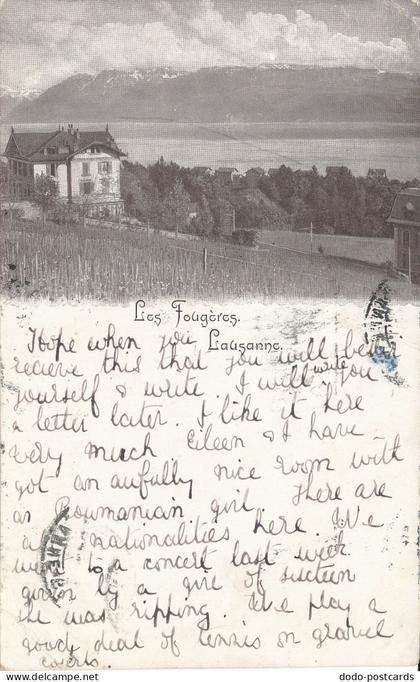 Les Fougères.
Lausanne.
Hope when you
receive this that you will be
yourself & write. I will write you
a letter later. I like it here
very much Eileen & I have
got an aufully nice room with
a Roumanian girl. There are
nationalities here. We
to a concert last week
given by a gire of sixteen
she was ripping. We play a
good deal of tennis on gravel
courts.
dodo-postcards.com